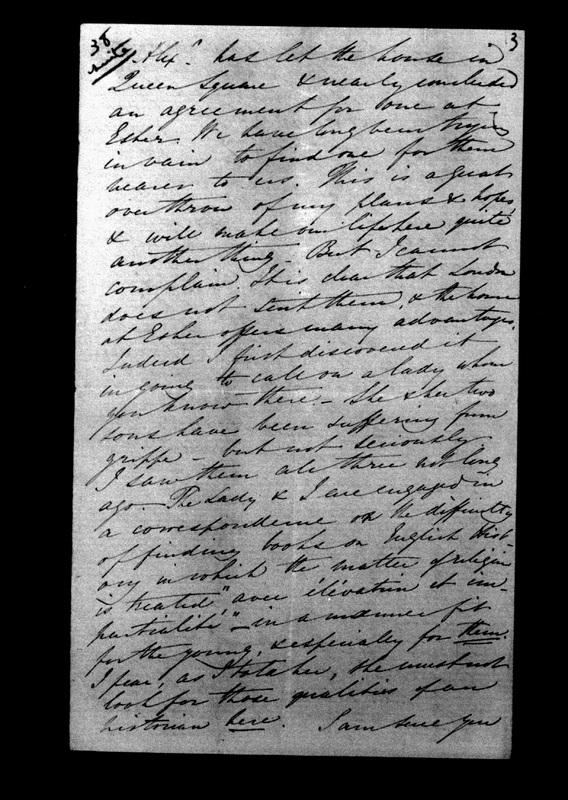 38
3
Alexr. has let the house in
Queen Square & nearly concluded
an agreement for one at
Esher. We have long been trying
in vain to find one for them
nearer to us. This is a great
overthrow of my plans & hopes,
& will make our life here quite
another thing – But I cannot
complain. It is clear that London
does not suit them, & the house
at Esher offers many advantages.
Indeed I first discovered it
in going to call on a lady whom
you know there – She & her two
sons have been suffering from
grippe – but not seriously
I saw them all three not long
ago. The Lady & I are engaged in
a correspondence on the difficulty
of finding books on English Hist-
ory in which the matter of religion
is treated "avec élévation et im-
partialité" – in a manner fit
for the young, & especially for them.
I fear, as I told her, she must not
look for those qualities of an
historian here. I am sure you